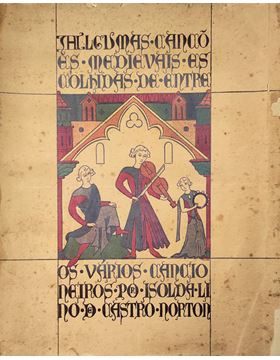 ALGUMAS·CANÇÕ
ES·MEDIEVAIS·ES
COLHIDAS·DE·ENTRE
OS·VÁRIOS·CANCIO
NEIROS·POR·ISOLDA·LI
NO·D·CASTRO·NORTON